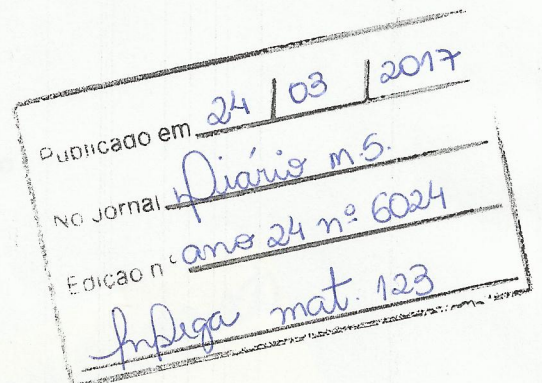 Publicado em 24 / 03 / 2017
No Jornal Diário m.s.
Edição nº ano 24 nº 6024
mat. 123